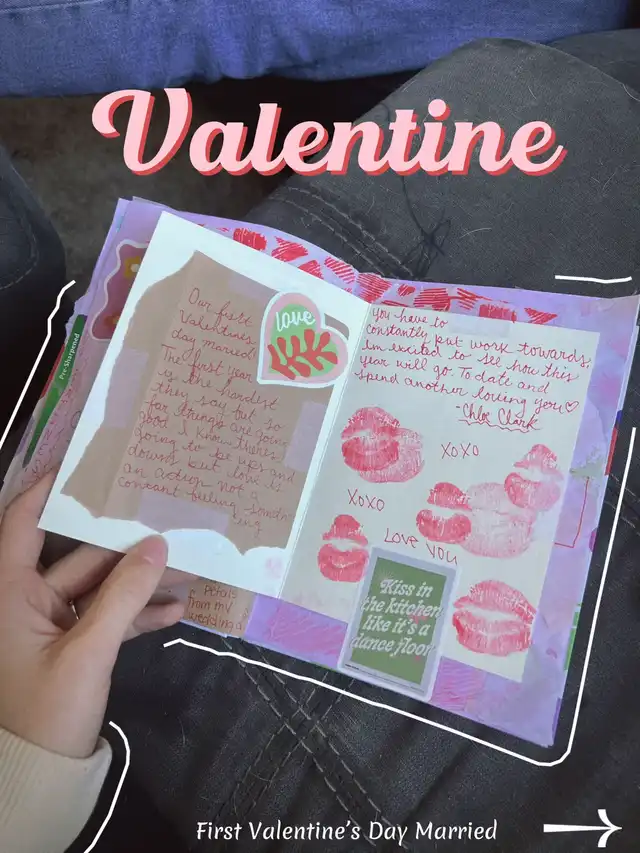 Valentine
Pre-Sharpened
Our first
Valentines
day married!
The first year
is the hardest
they say but so
far things are going
good. I know theres
going to be ups and
downs but love is
an action not a
constant feeling
love
You have to
constantly put work towards.
Im excited to see how this
year will go. To date and
spend another loving you♡
-Chloe Clark
XOXO
XOXO
LOVE YOU
Kiss in
the kitchen
like it's a
dance floor
petals
from my
wedding
First Valentine's Day Married